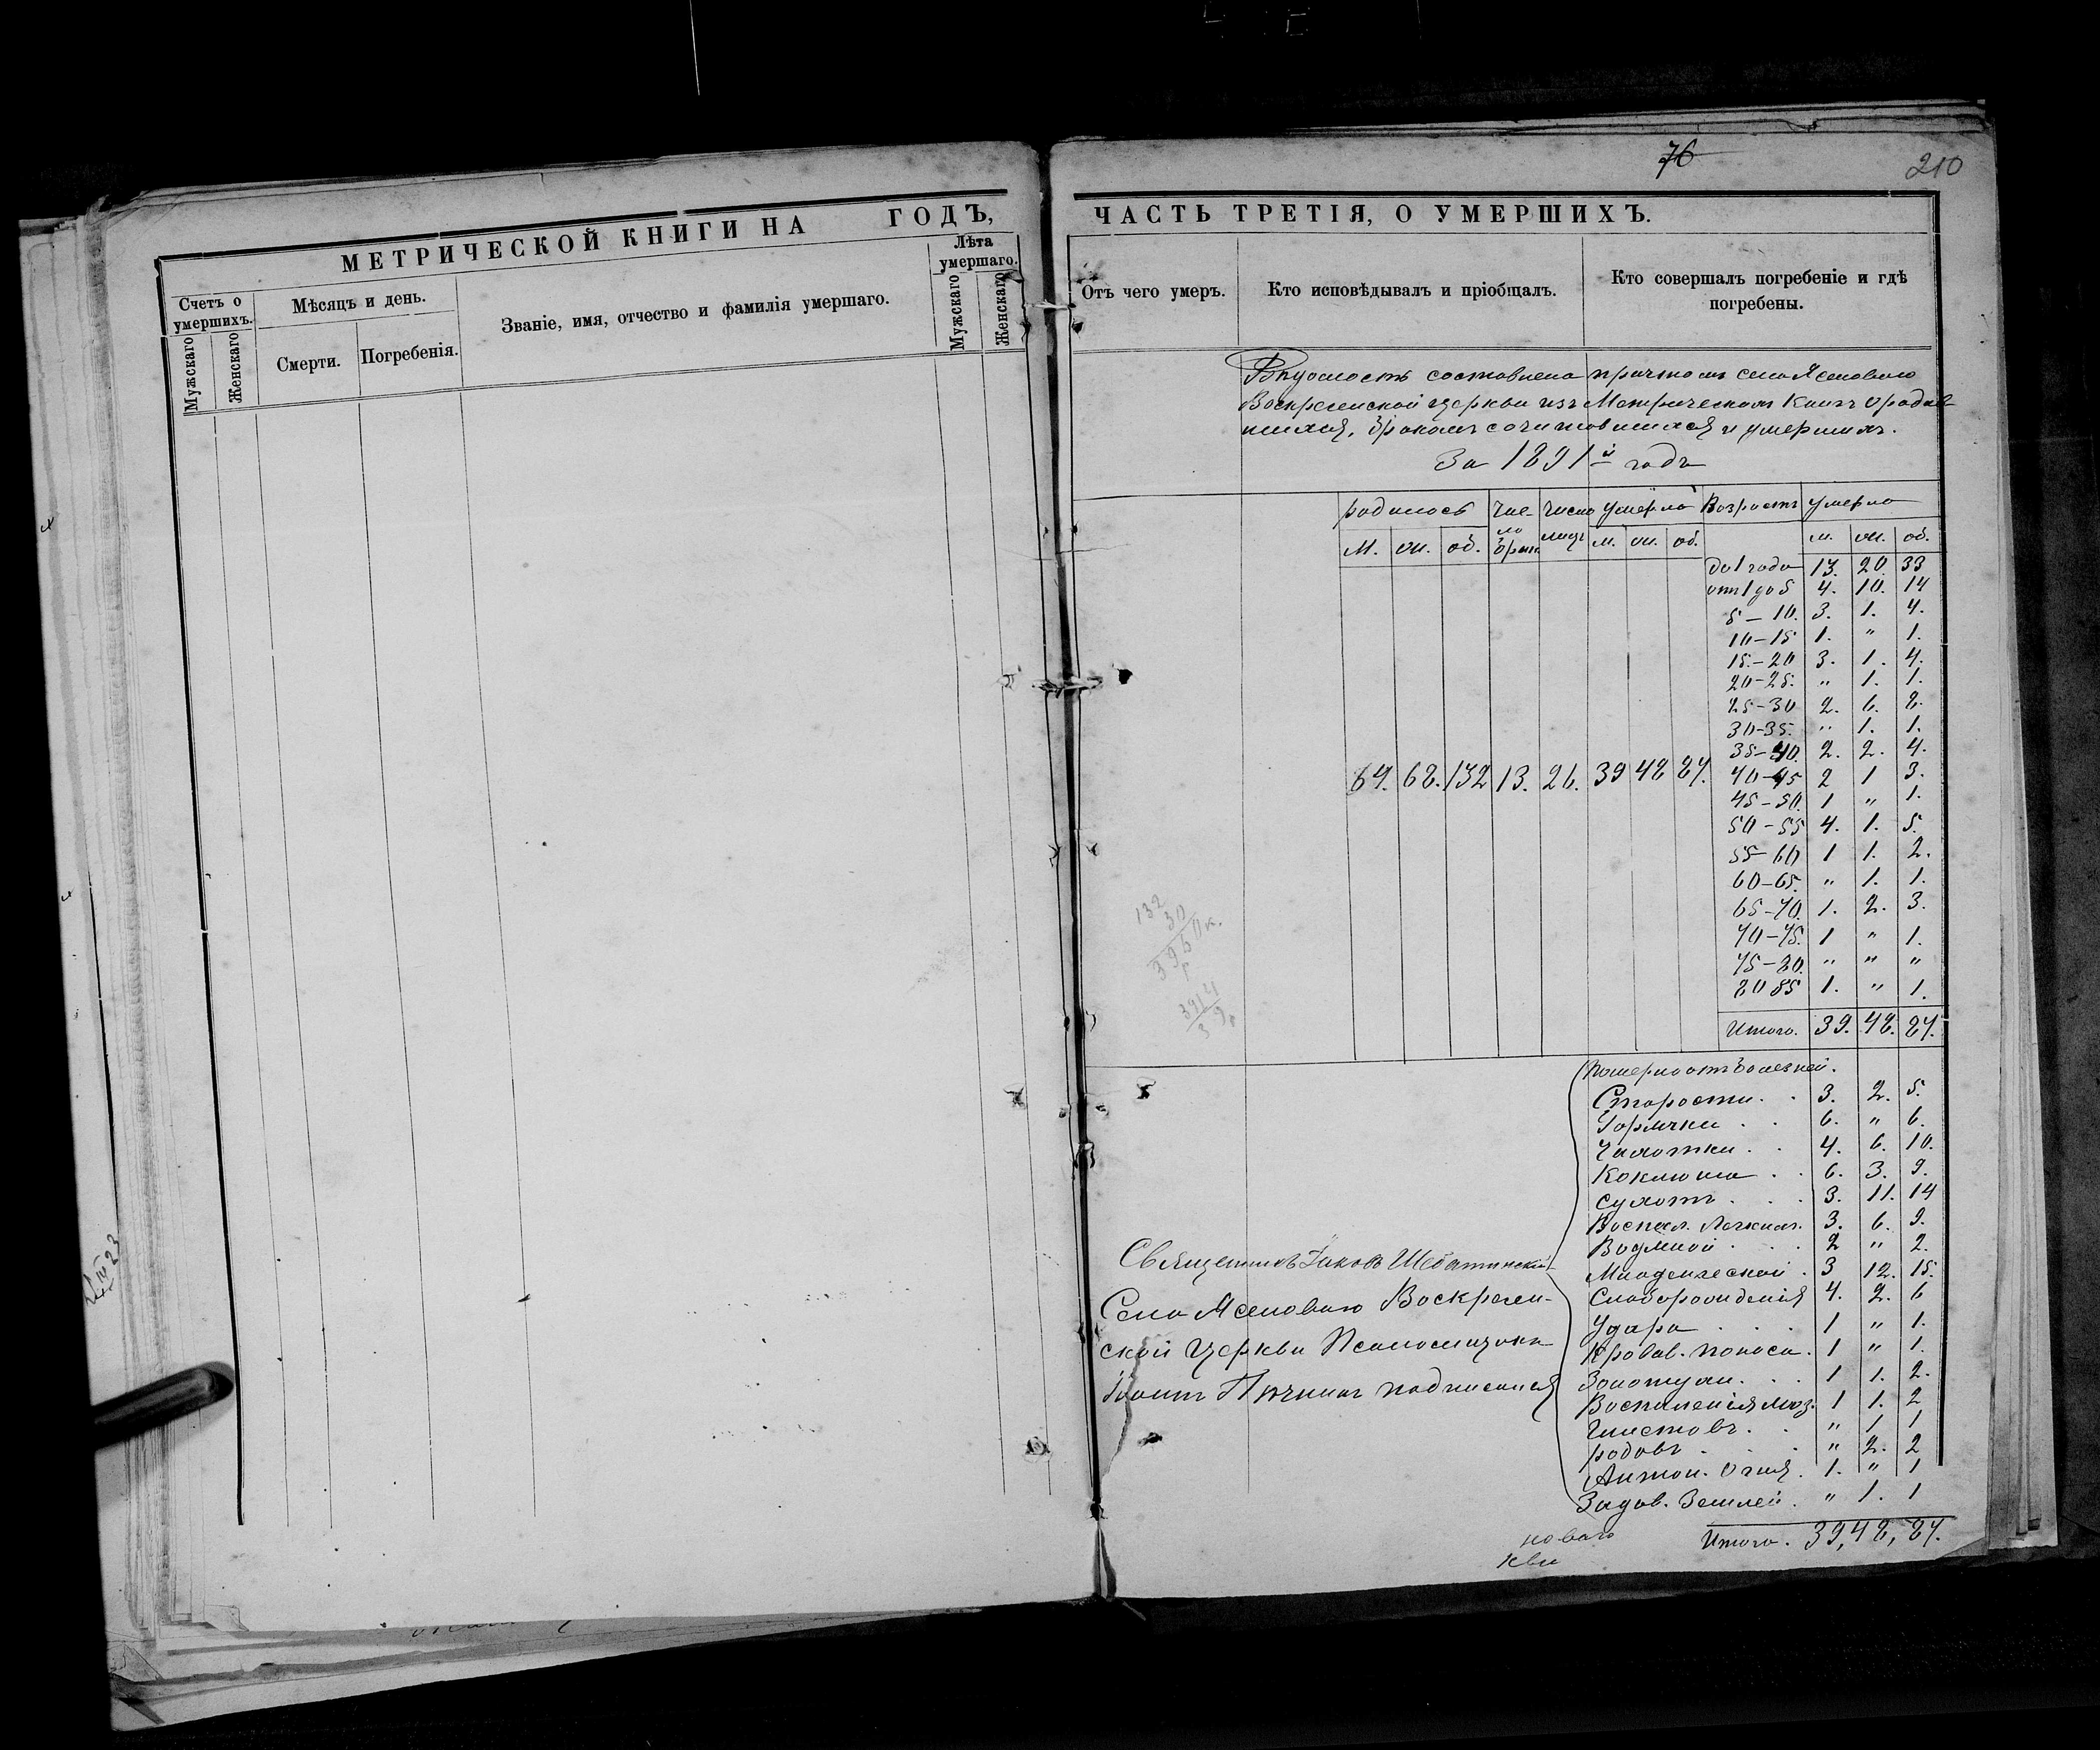 МЕТРИЧЕСКОЙ КНИГИ НА ГОДЪ,
Счетъ о умершихъ.
Мужскаго
Женскаго
Мѣсяцъ и день.
Смерти.
Погребенія.
Званіе, имя, отчество и фамилія умершаго.
Лѣта умершаго.
Мужскаго
Женскаго
76
210
ЧАСТЬ ТРЕТІЯ, О УМЕРШИХЪ.
Отъ чего умеръ.
Кто исповѣдывалъ и пріобщалъ.
Кто совершалъ погребеніе и гдѣ
погребены.
Вѣдомость составлена причтомъ села Ясеноваго
Воскресенской церкви изъ Метрическихъ Книгъ о родив-
шихся, бракомъ сочитавшихся и умершихъ.
За 1891й годъ
родилось Число брак. Число лицъ умерло Возрастъ умерло
м. ж. об. м. ж. об. м. ж. об.
до 1 года 13. 20. 33
отъ 1 до 5 4. 10. 14
5 – 10. 3. 1. 4.
10 – 15 1. " 1.
15 – 20 3. 1. 4.
20 – 25. " 1. 1.
25 – 30 2. 6. 8.
30 – 35. " 1. 1.
35 – 40. 2. 2. 4.
64. 68. 132 13. 26. 39 48 87. 40 – 45 2 1 3.
45 – 50. 1 " 1.
50 – 55 4. 1. 5.
55 – 60 1 1. 2.
60 – 65. " 1. 1.
65 – 70. 1. 2. 3.
70 – 75. 1 " 1.
75 – 80. " " "
80 85 1. " 1.
Итого. 39. 48. 87.
132
30
3960к.
Померло отъ болезней.
Старости. . 3. 2. 5.
Горячки . . 6. " 6.
Чахотки . . 4. 6. 10.
Коклюша . . 6. 3. 9.
Сухотъ . . . 3. 11. 14
Воспал. Легкихъ. 3. 6. 9.
Водяной . . . 2 " 2.
Младенческой . 3 12. 15.
Слаборожденія 4. 2. 6
Удара . . . 1 " 1.
Кровав. поноса. 1 " 1.
Золотухи . . . 1 1. 2.
Воспаленія моз. 1 1. 2
Глистовъ . . " 1 1
родовъ . . . " 2. 2
Антон. Огня . 1. " 1
Задав. Землей . " 1. 1
Итого. 39, 48, 87.
Священникъ Іаковъ
Села Ясеноваго Воскресен-
ской Церкви Псаломщикъ
подписался
новаго
кви
IV 23